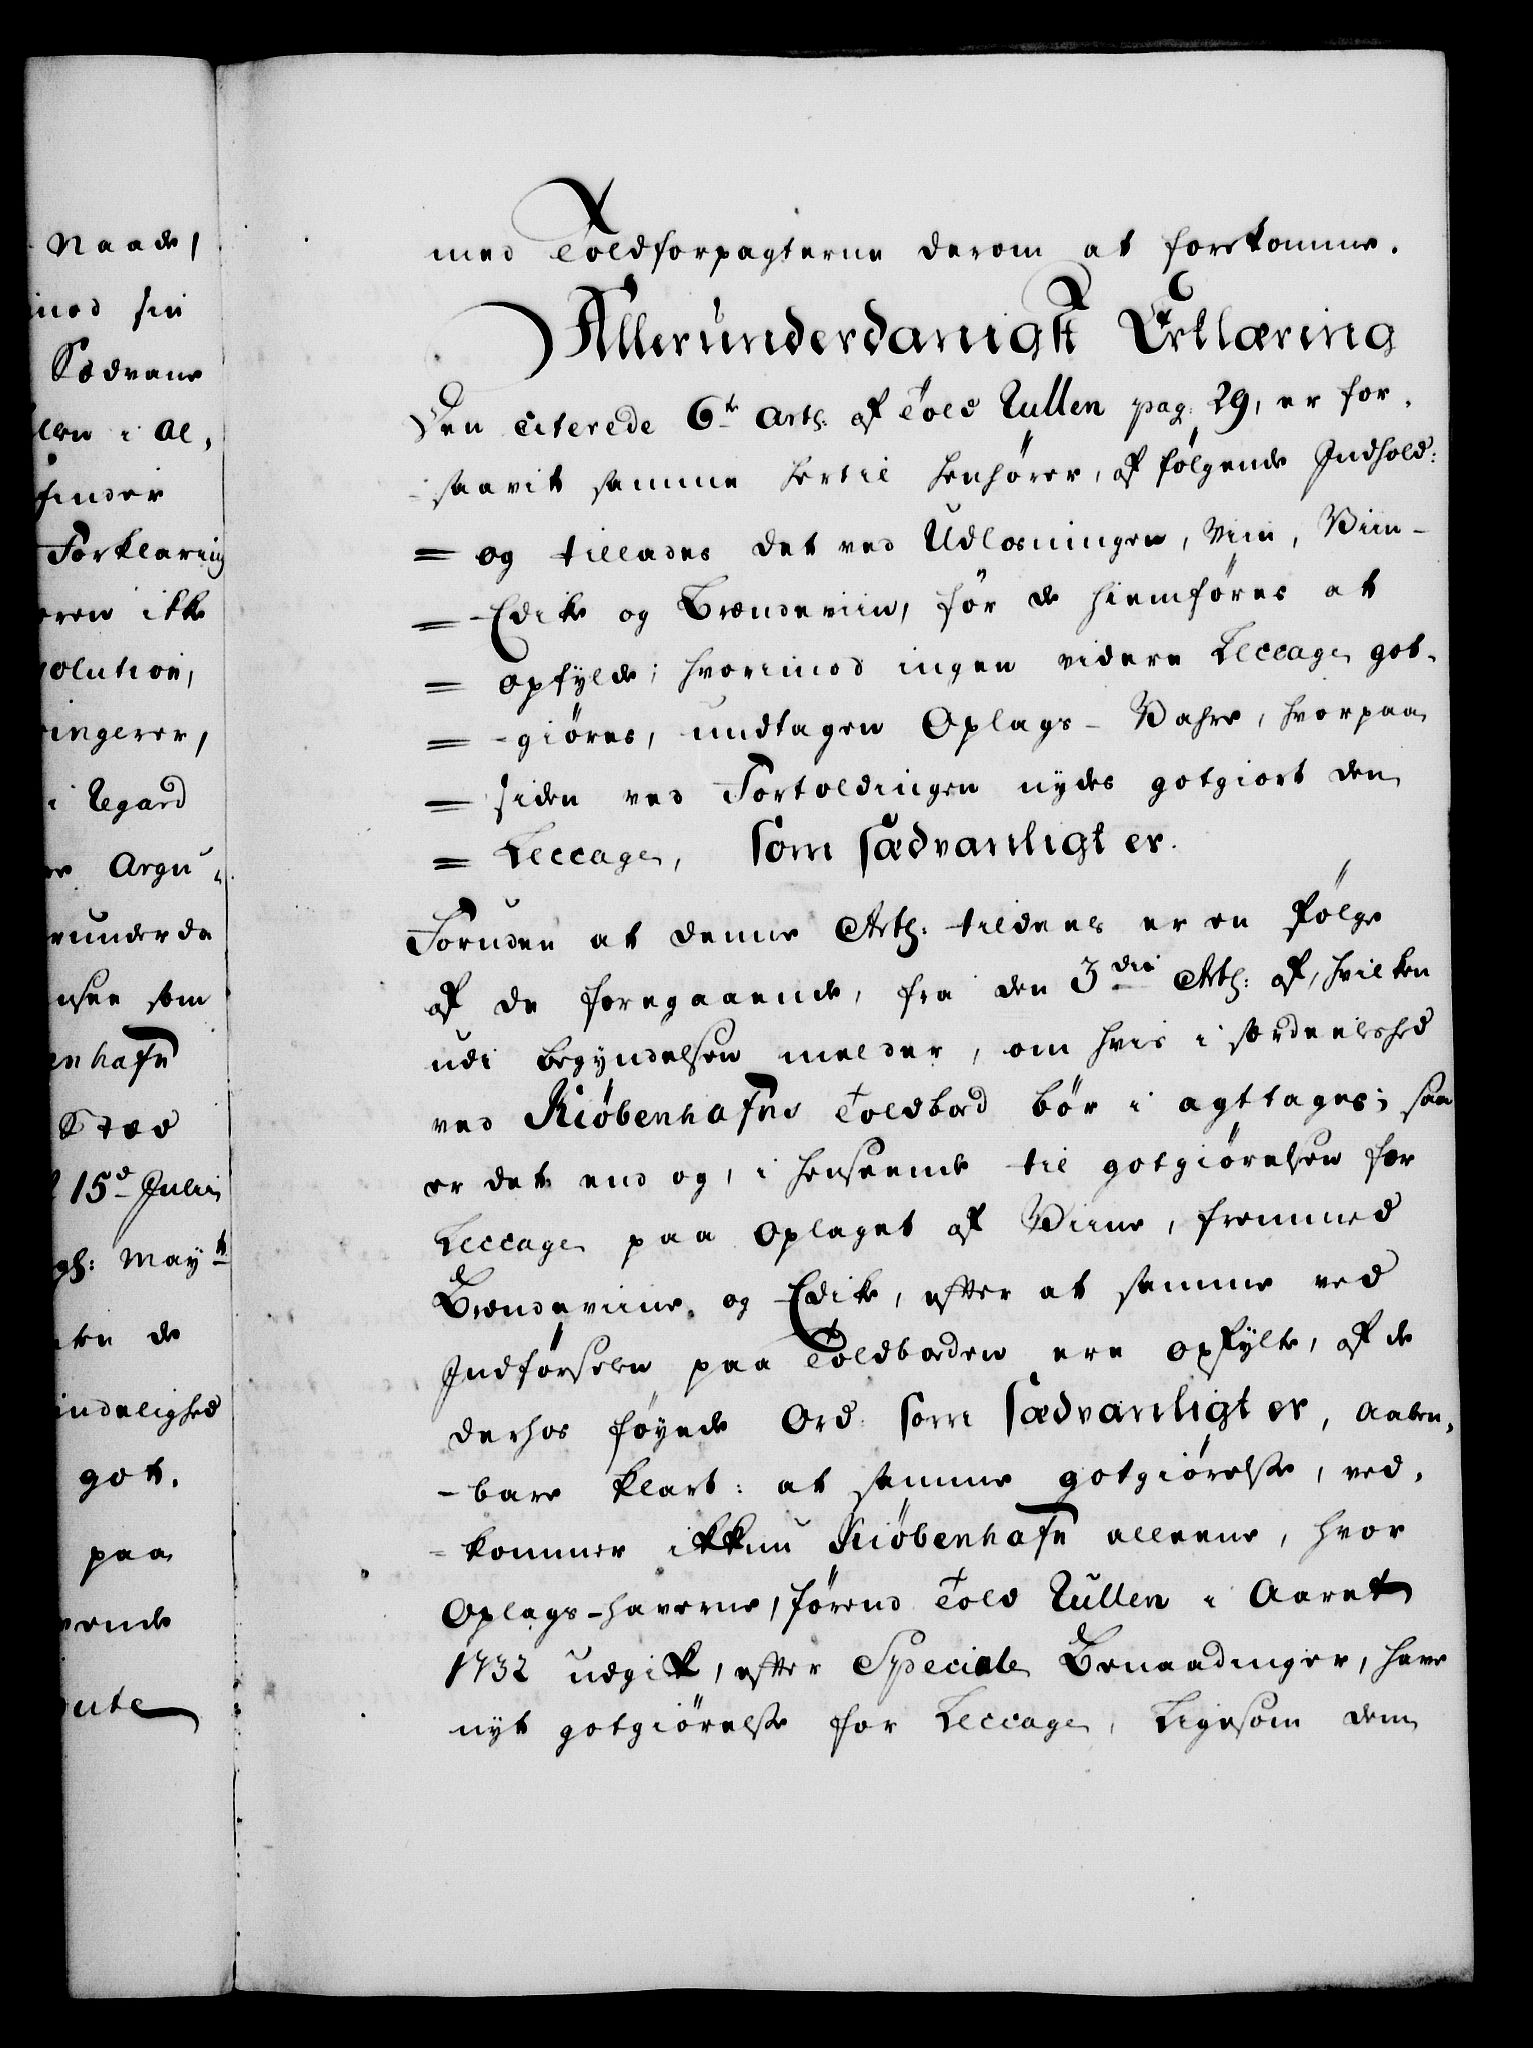 Naade,
imod sin
Sædvane
llen i Al,
finder
Forklaring
eren ikke
olution,
ringerer,
i Regard
re Argu,,
runderda
nsee som
enhafn
Stæd
15de Julii
gh: Mayt
ken de
indelighed
got,
paa
vende
oute
med Toldforpagterne derom at forekomme.
Allerunderdanigst Erklæring
Den citerede 6te Artl: af Told Rullen pag: 29, er for,
-saavit samme hertil henhører, af følgende Indhold:
= og tillades det ved Udlosningen, Viin, Viin-
= Edike og Brændeviin, før de hiemføres at
= opfylde; hvorimod ingen videre Leccage got-
= -giøres, undtagen Oplags-Vahre, hvorpaa
= siden ved Fortoldingen nydes gotgiort den
= Leccage, som sædvanligt er.
Foruden at denne Artl: tildeels er en Følge
af de foregaaende, fra den 3die Artl: af, hvilken
udi begyndelsen melder, om hvis i særdeelshed
ved Kiøbenhafns Toldbod bør i agttages; saa
er det end og, i henseende til gotgiørelsen for
Leccage paa Oplaget af Viine, fremmed
Brændeviine, og Edike, efter at samme ved
Indførselen paa Toldboden ere opfylte, af de
derhos føyede Ord: som sædvanligt er, aaben,
-bare klart: at samme gotgiørelse, ved,
-kommer ikkun Kiøbenhafn alleene, hvor
Oplags-haverne, førend Told Rullen i Aaret
1732 udgik, efter Speciale Benaadinger, have
nyt gotgiørelse for Leccage, ligesom dem